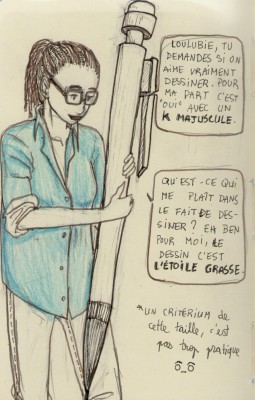 LOULUBIE, TU
DEMANDES SI ON
AIME VRAIMENT
DESSINER. POUR
MA PART C'EST
"OUI" AVEC UN
K MAJUSCULE.
QU'EST-CE QUI
ME PLAÎT DANS
LE FAIT DE DES-
SINER? EH BEN
POUR MOI, LE
DESSIN C'EST
L'ÉTOILE GRASSE.
*UN CRITÉRIUM de
cette taille, c'est
pas trop pratique
ō_ō